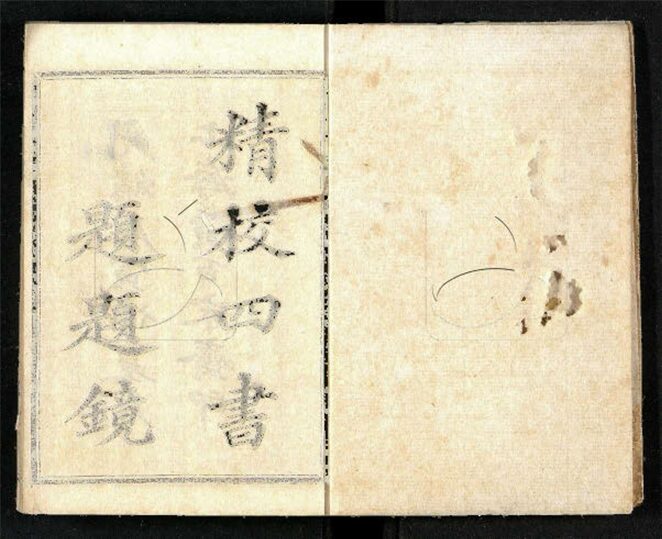 精校四書
小題題鏡